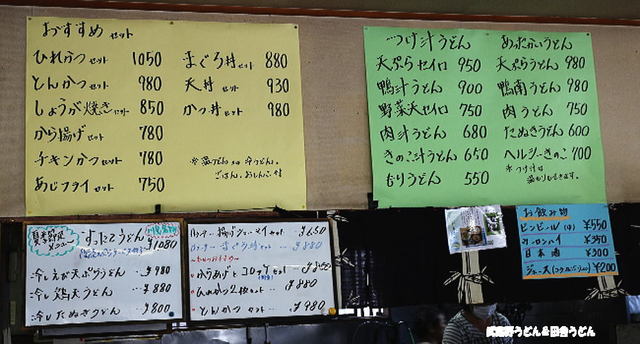 おすすめ セット
ひれかつ セット 1050
とんかつ セット 980
しょうが焼き セット 850
から揚げ セット 780
チキンかつ セット 780
あじフライ セット 750
まぐろ丼 セット 880
天丼 セット 930
かつ丼 セット 980
ごはん、おしんこ付
つけ汁うどん
天ぷらセイロ 950
鴨汁うどん 900
野菜天セイロ 750
肉汁うどん 680
きのこ汁うどん 650
もりうどん 550
あったかいうどん
天ぷらうどん 980
鴨南うどん 980
肉うどん 750
たぬきうどん 600
ヘルシーきのこ 700
メニュー
すったてうどん
¥1080
冷しえび天ぷらうどん ¥980
冷し鶏天うどん ¥880
冷したぬきうどん ¥800
¥650
¥880
からあげとコロッケセット
ひれかつ2枚セット ¥880
とんかつセット ¥980
お飲み物
ビンビール(中) ¥550
ウーロンハイ ¥350
日本酒 ¥300
ジュース ¥200
武蔵野うどん&田舎うどん